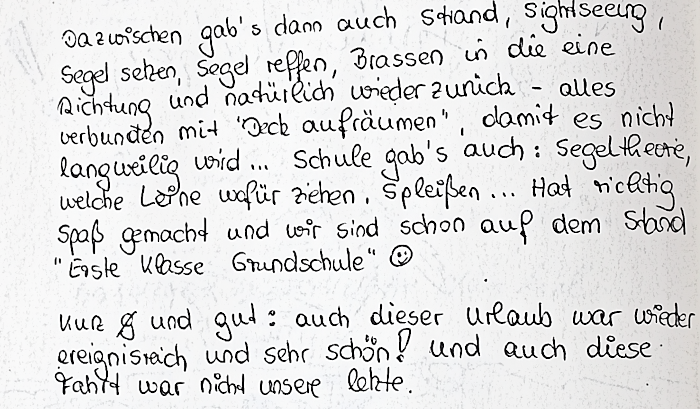 Dazwischen gab's dann auch Strand, Sightseeing,
Segel setzen, Segel reffen, Brassen in die eine
Richtung und natürlich wieder zurück - alles
verbunden mit "Deck aufräumen", damit es nicht
langweilig wird... Schule gab's auch: Segeltheorie,
welche Leine wofür ziehen, Spleißen... Hat richtig
Spaß gemacht und wir sind schon auf dem Stand
"Erste Klasse Grundschule" ☺
Kurz und gut: auch dieser Urlaub war wieder
ereignisreich und sehr schön! Und auch diese
Fahrt war nicht unsere letzte.